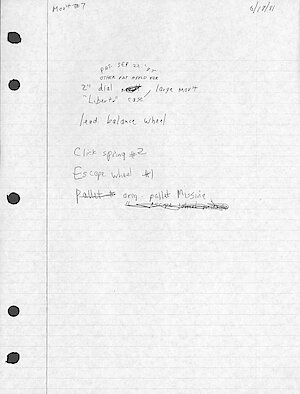 Mov't #7
6/18/81
PAT. SEP 22 '85
OTHER PAT APPLD FOR
2" dial large mov't
"Liberty" case
lead balance wheel
Click spring #2
Escape wheel #1
Pallet # orig. pallet Missing